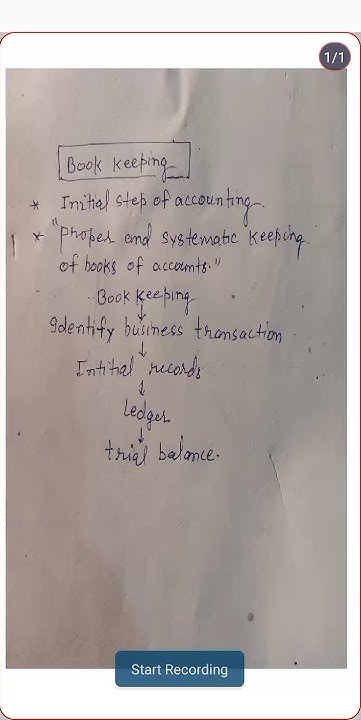 1/1
Book keeping
* Initial step of accounting.
* "Proper and systematic keeping
of books of accounts."
Book keeping
↓
Identify business transaction.
↓
Intitial records
↓
Ledger
↓
trial balance.
Start Recording